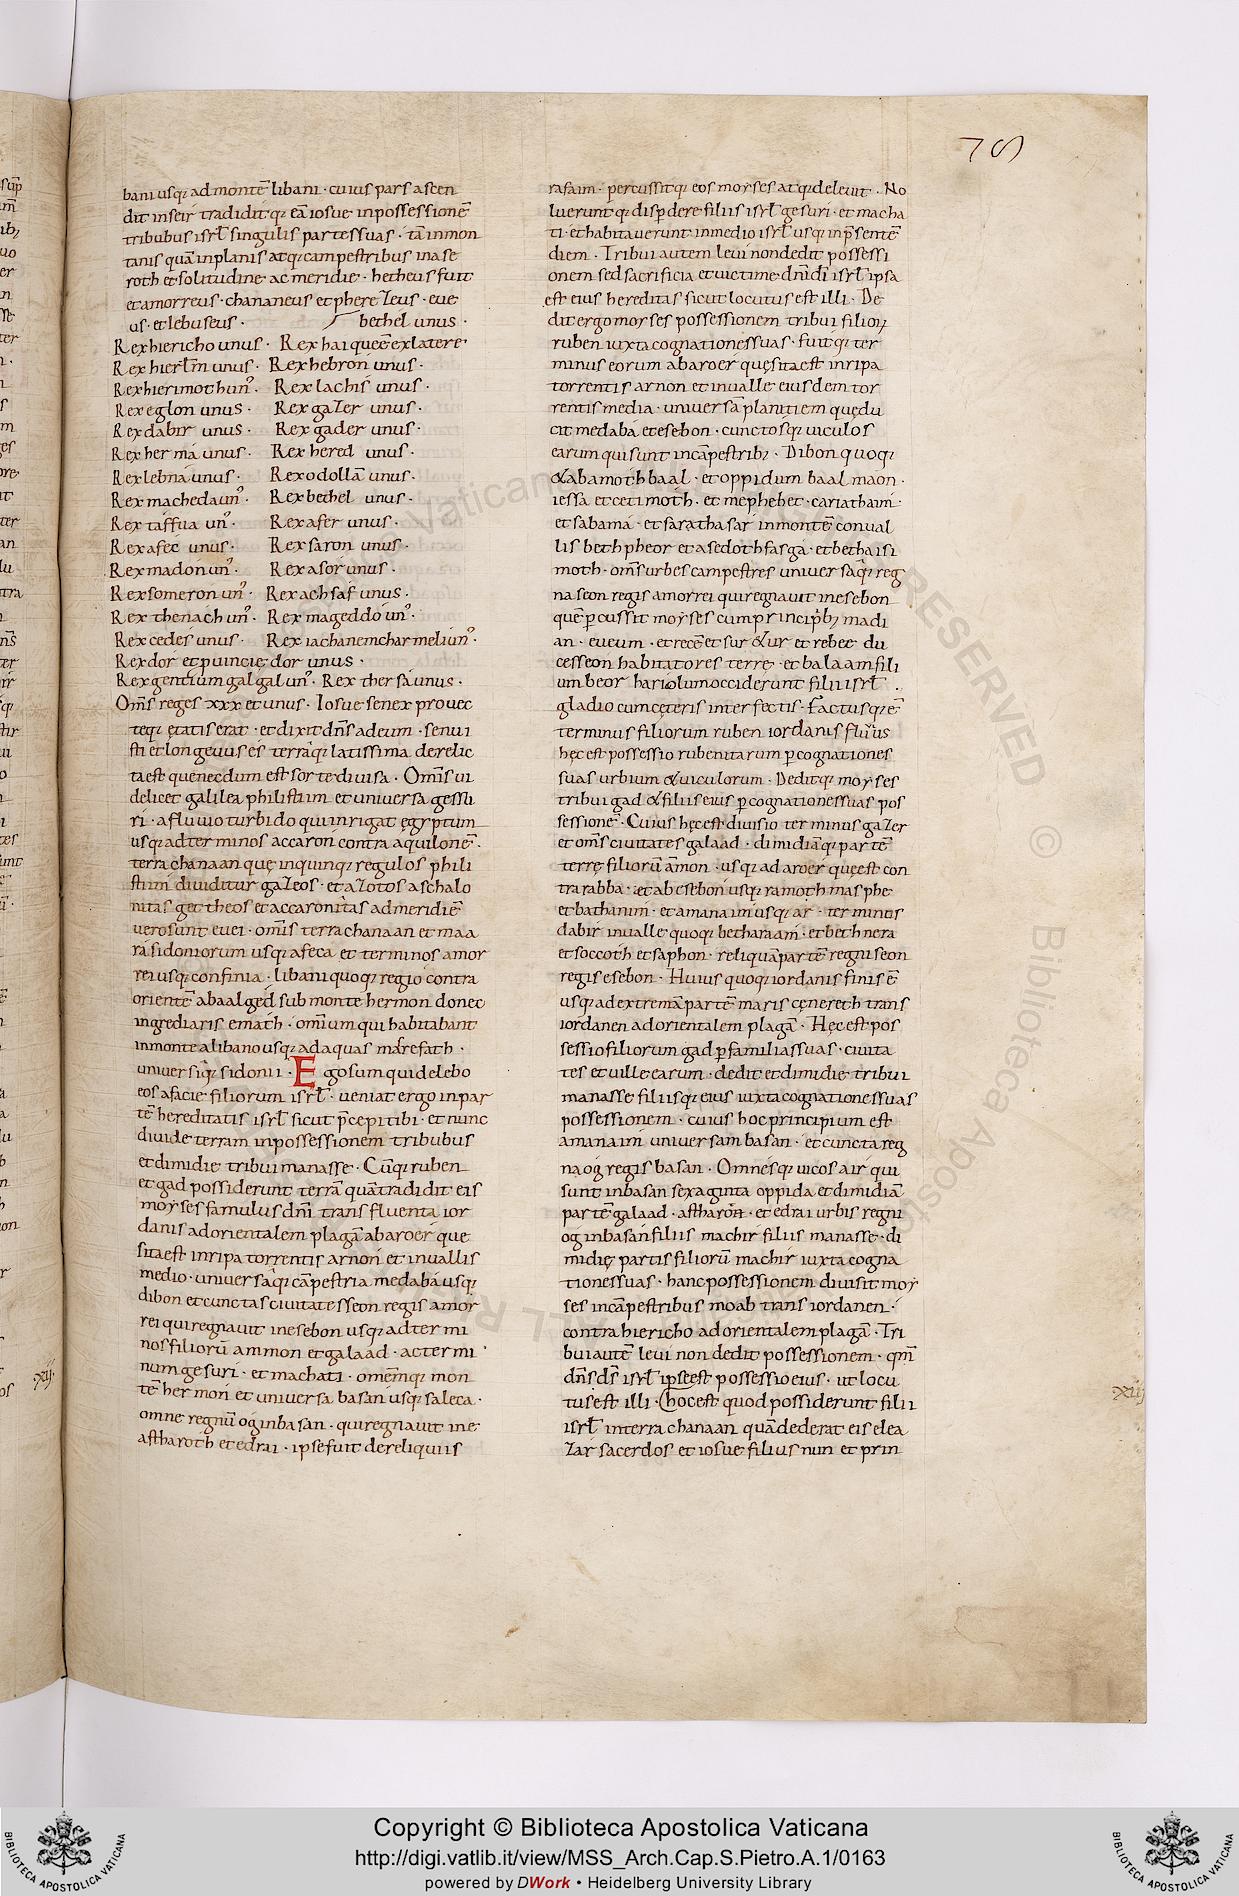 78
bani usq; ad montē libani · cuius pars ascen
dit in seir tradidit q; eā iosue in possessionē
tribubus isrł singulis partes suas · tā in mon
tanis quā in planis atq; campestribus in ase
roth et solitudine ac meridie · hetheus fuit
et amorreus · chananeus et pherezeus · eue
us · et iebuseus · bethel unus ·
Rex hiericho unus · Rex hai que ē ex latere
Rex hierłm unus · Rex hebron unus ·
Rex hierimoth un᾿ · Rex lachis unus ·
Rex eglon unus · Rex gazer unus ·
Rex dabir unus · Rex gader unus ·
Rex herma unus · Rex hered unus ·
Rex lebna unus · Rex odollā unus ·
Rex macheda un᾿ · Rex bethel unus ·
Rex taffua un᾿ · Rex afer unus ·
Rex afec unus · Rex saron unus ·
Rex madon un᾿ · Rex asor unus ·
Rex someron un᾿ · Rex achsaf unus ·
Rex thenach un᾿ · Rex mageddo un᾿ ·
Rex cedes unus · Rex iachanem charmeli un᾿ ·
Rex dor et ꝓuincię dor unus ·
Rex gentium galgal un᾿ · Rex thersa unus ·
Om̄s reges xxx et unus · Iosue senex prouec
teq; ętatis erat · et dixit dn̄s ad eum · senui
sti et longeuus es terraq; latissima derelic
ta est que necdum est sorte diuisa · Om̄s ui
delicet galilea philistiim et uniuersa gessu
ri · a fluuio turbido qui inrigat ęgyptum
usq; ad terminos accaron contra aquilonē ·
terra chanaan quę in quinq; regulos phili
stiim diuiditur gazeos · et azotos aschalo
nitas gettheos et accaronitas ad meridiē
uero sunt euei · omis terra chanaan et maa
ra sidoniorum usq; afeca et terminos amor
rei usq; confinia · libani quoq; regio contra
orientē a baalged sub monte hermon donec
ingrediaris emath · omium qui habitabant
in monte a libano usq; ad aquas marefath ·
uniuersiq; sidonii · Ego sum qui delebo
eos a facie filiorum isrł · ueniat ergo in par
tē hereditatis isrł sicut p̄cepi tibi · et nunc
diuide terram in possessionem tribubus
et dimidie tribui manasse · Cū q; ruben
et gad possiderunt terrā quā tradidit eis
moyses famulus dn̄i trans fluenta ior
danis ad orientalem plagā ab aroer que
sita est in ripa torrentis arnon et in uallis
medio · uniuersaq; cāpestria medaba usq;
dibon et cunctas ciuitates seon regis amor
rei qui regnauit in esebon usq; ad termi
nos filiorū ammon et galaad · ac termi
num gesuri · et machati · omemq; mon
tē hermon et uniuersa basan usq; saleca ·
omne regnū og in basan · qui regnauit in e
astharoth et edrai · ipse fuit de reliquiis
rafaim · percussitq; eos moyses atq; deleuit · No
luerunt q; disꝑdere filii isrł gesuri · et macha
ti · et habitauerunt in medio isrł usq; in p̄sentē
diem · Tribui autem leui non dedit possessi
onem sed sacrificia et uictime dn̄i di isrł ipsa
est eius hereditas sicut locutus est illi · De
dit ergo moyses possessionem tribui filioꝝ
ruben iuxta cognationes suas · fuitq; ter
minus eorum ab aroer quę sita est in ripa
torrentis arnon et in ualle eiusdem tor
rentis media · uniuersā planitiem quę du
cit medaba et esebon · cunctosq; uiculos
earum qui sunt in cāpestrib; · Dibon quoq;
& abamoth baal · et oppidum baal maon ·
iessa et cetimoth · et mephehet · cariathaim ·
et sabama · et sarathasar in monte conual
lis beth pheor et asedoth fasga · et bethaisi
moth · om̄s urbes campestres uniuersaq; reg
na seon regis amorrei qui regnauit in esebon
quē ꝑcussit moyses cum principib; madi
an · eueum · et recē et sur & ur et rebee du
ces seon habitatores terrę · et balaam fili
um beor hariolum occiderunt filii isrł ·
gladio cum cęteris interfectis · Factusq; ē
terminus filiorum ruben iordanis fluuius
hęc est possessio rubenitarum ꝑ cognationes
suas urbium & uiculorum · Deditq; moyses
tribui gad & filiis eius ꝑ cognationes suas pos
sessionē · Cuius hęc est diuisio terminus gazer
et om̄s ciuitates galaad · dimidiāq; partē
terrę filiorū āmon · usq; ad aroer quę est con
tra rabba · et ab esebon usq; ramoth masphe
et bathanim · et amanaim usq; ar · terminos
dabir in ualle quoq; betharaam · et bethnera
et soccoth et saphon · reliquā partē regni seon
regis esebon · Huius quoq; iordanis finis ē
usq; ad extremā partē maris cęnereth trans
iordanen ad orientalem plagā · Hęc est pos
sessio filiorum gad ꝑ familias suas · ciuita
tes et uille earum · dedit et dimidie tribui
manasse filiisq; eius iuxta cognationes suas
possessionem · cuius hoc principium est
amanaim uniuersam basan · et cuncta reg
na og regis basan · Omnesq; uicos air qui
sunt in basan sexaginta oppida et dimidiā
partē galaad · astharoth · et edrai urbis regni
og in basan filiis machir filius manasse · di
midię partis filiorū machir iuxta cogna
tiones suas · hanc possessionem diuisit moy
ses in cāpestribus moab trans iordanen ·
contra hiericho ad orientalem plagā · Tri
bui autē leui non dedit possessionem · qm̄
dn̄s ds̄ isrł ipse est possessio eius · ut locu
tus est illi · Hoc est quod possiderunt filii
isrł in terra chanaan quā dederat eis elea
zar sacerdos et iosue filius nun et prin
xiij
Copyright © Biblioteca Apostolica Vaticana
http://digi.vatlib.it/view/MSS_Arch.Cap.S.Pietro.A.1/0163
powered by DWork • Heidelberg University Library